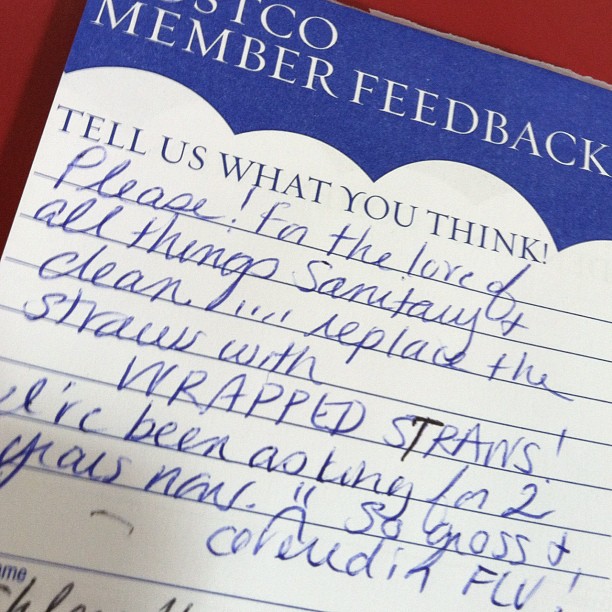 COSTCO
MEMBER FEEDBACK
TELL US WHAT YOU THINK!
Please! For the love of
all things Sanitary &
clean!.... replace the
straws with
WRAPPED STRAWS!
I've been asking for 2
years now. So gross &
covered in FLU!